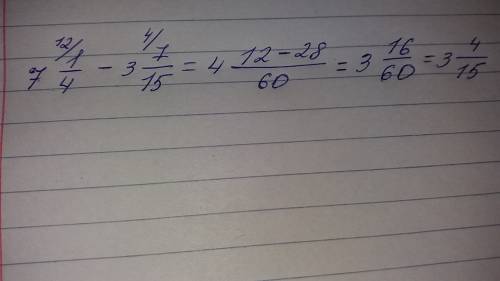 7 12/ 1/4 − 3 4/ 7/15 = 4 12−28/60 = 3 16/60 = 3 4/15